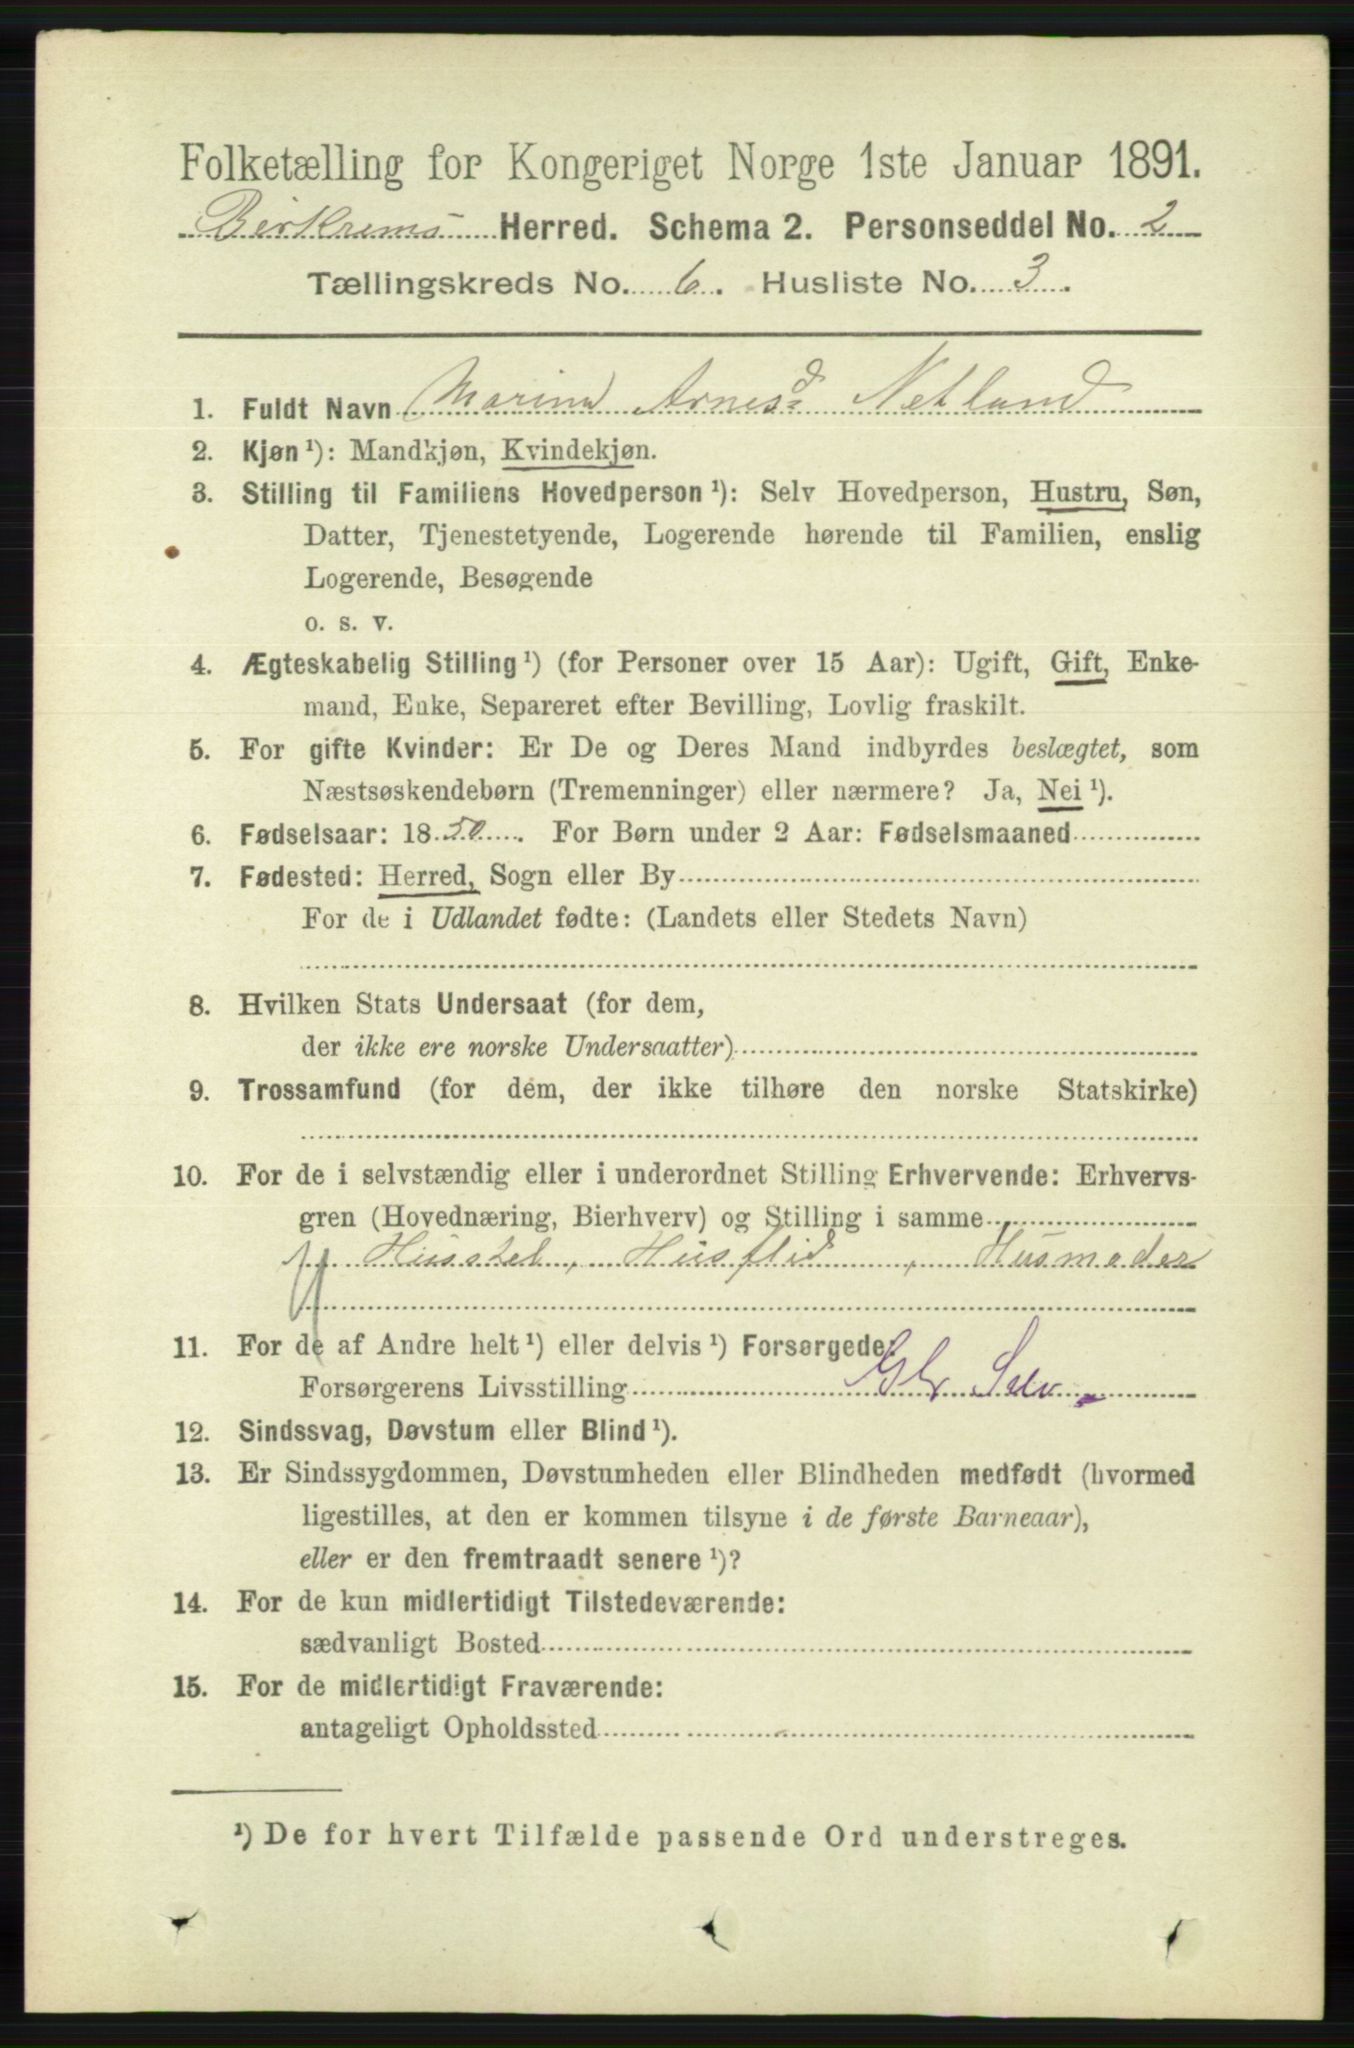 Folketælling for Kongeriget Norge 1ste Januar 1891.
Birkrems Herred. Schema 2. Personseddel No. 2
Tællingskreds No. 6. Husliste No. 3.
1. Fuldt Navn Marina Arnesd Netland
2. Kjøn ¹): Mandkjøn, Kvindekjøn.
3. Stilling til Familiens Hovedperson ¹): Selv Hovedperson, Hustru, Søn,
Datter, Tjenestetyende, Logerende hørende til Familien, enslig
Logerende, Besøgende
o. s. v.
4. Ægteskabelig Stilling ¹) (for Personer over 15 Aar): Ugift, Gift, Enke-
mand, Enke, Separeret efter Bevilling, Lovlig fraskilt.
5. For gifte Kvinder: Er De og Deres Mand indbyrdes beslægtet, som
Næstsøskendebørn (Tremenninger) eller nærmere? Ja, Nei ¹).
6. Fødselsaar: 1850. For Børn under 2 Aar: Fødselsmaaned
7. Fødested: Herred, Sogn eller By
For de i Udlandet fødte: (Landets eller Stedets Navn)
8. Hvilken Stats Undersaat (for dem,
der ikke ere norske Undersaatter)
9. Trossamfund (for dem, der ikke tilhøre den norske Statskirke)
10. For de i selvstændig eller i underordnet Stilling Erhvervende: Erhvervs-
gren (Hovednæring, Bierhverv) og Stilling i samme
Husstel, Husflid, Husmoder
11. For de af Andre helt ¹) eller delvis ¹) Forsørgede:
Forsørgerens Livsstilling Gbr Selv
12. Sindssvag, Døvstum eller Blind ¹).
13. Er Sindssygdommen, Døvstumheden eller Blindheden medfødt (hvormed
ligestilles, at den er kommen tilsyne i de første Barneaar),
eller er den fremtraadt senere ¹)?
14. For de kun midlertidigt Tilstedeværende:
sædvanligt Bosted
15. For de midlertidigt Fraværende:
antageligt Opholdssted
¹) De for hvert Tilfælde passende Ord understreges.